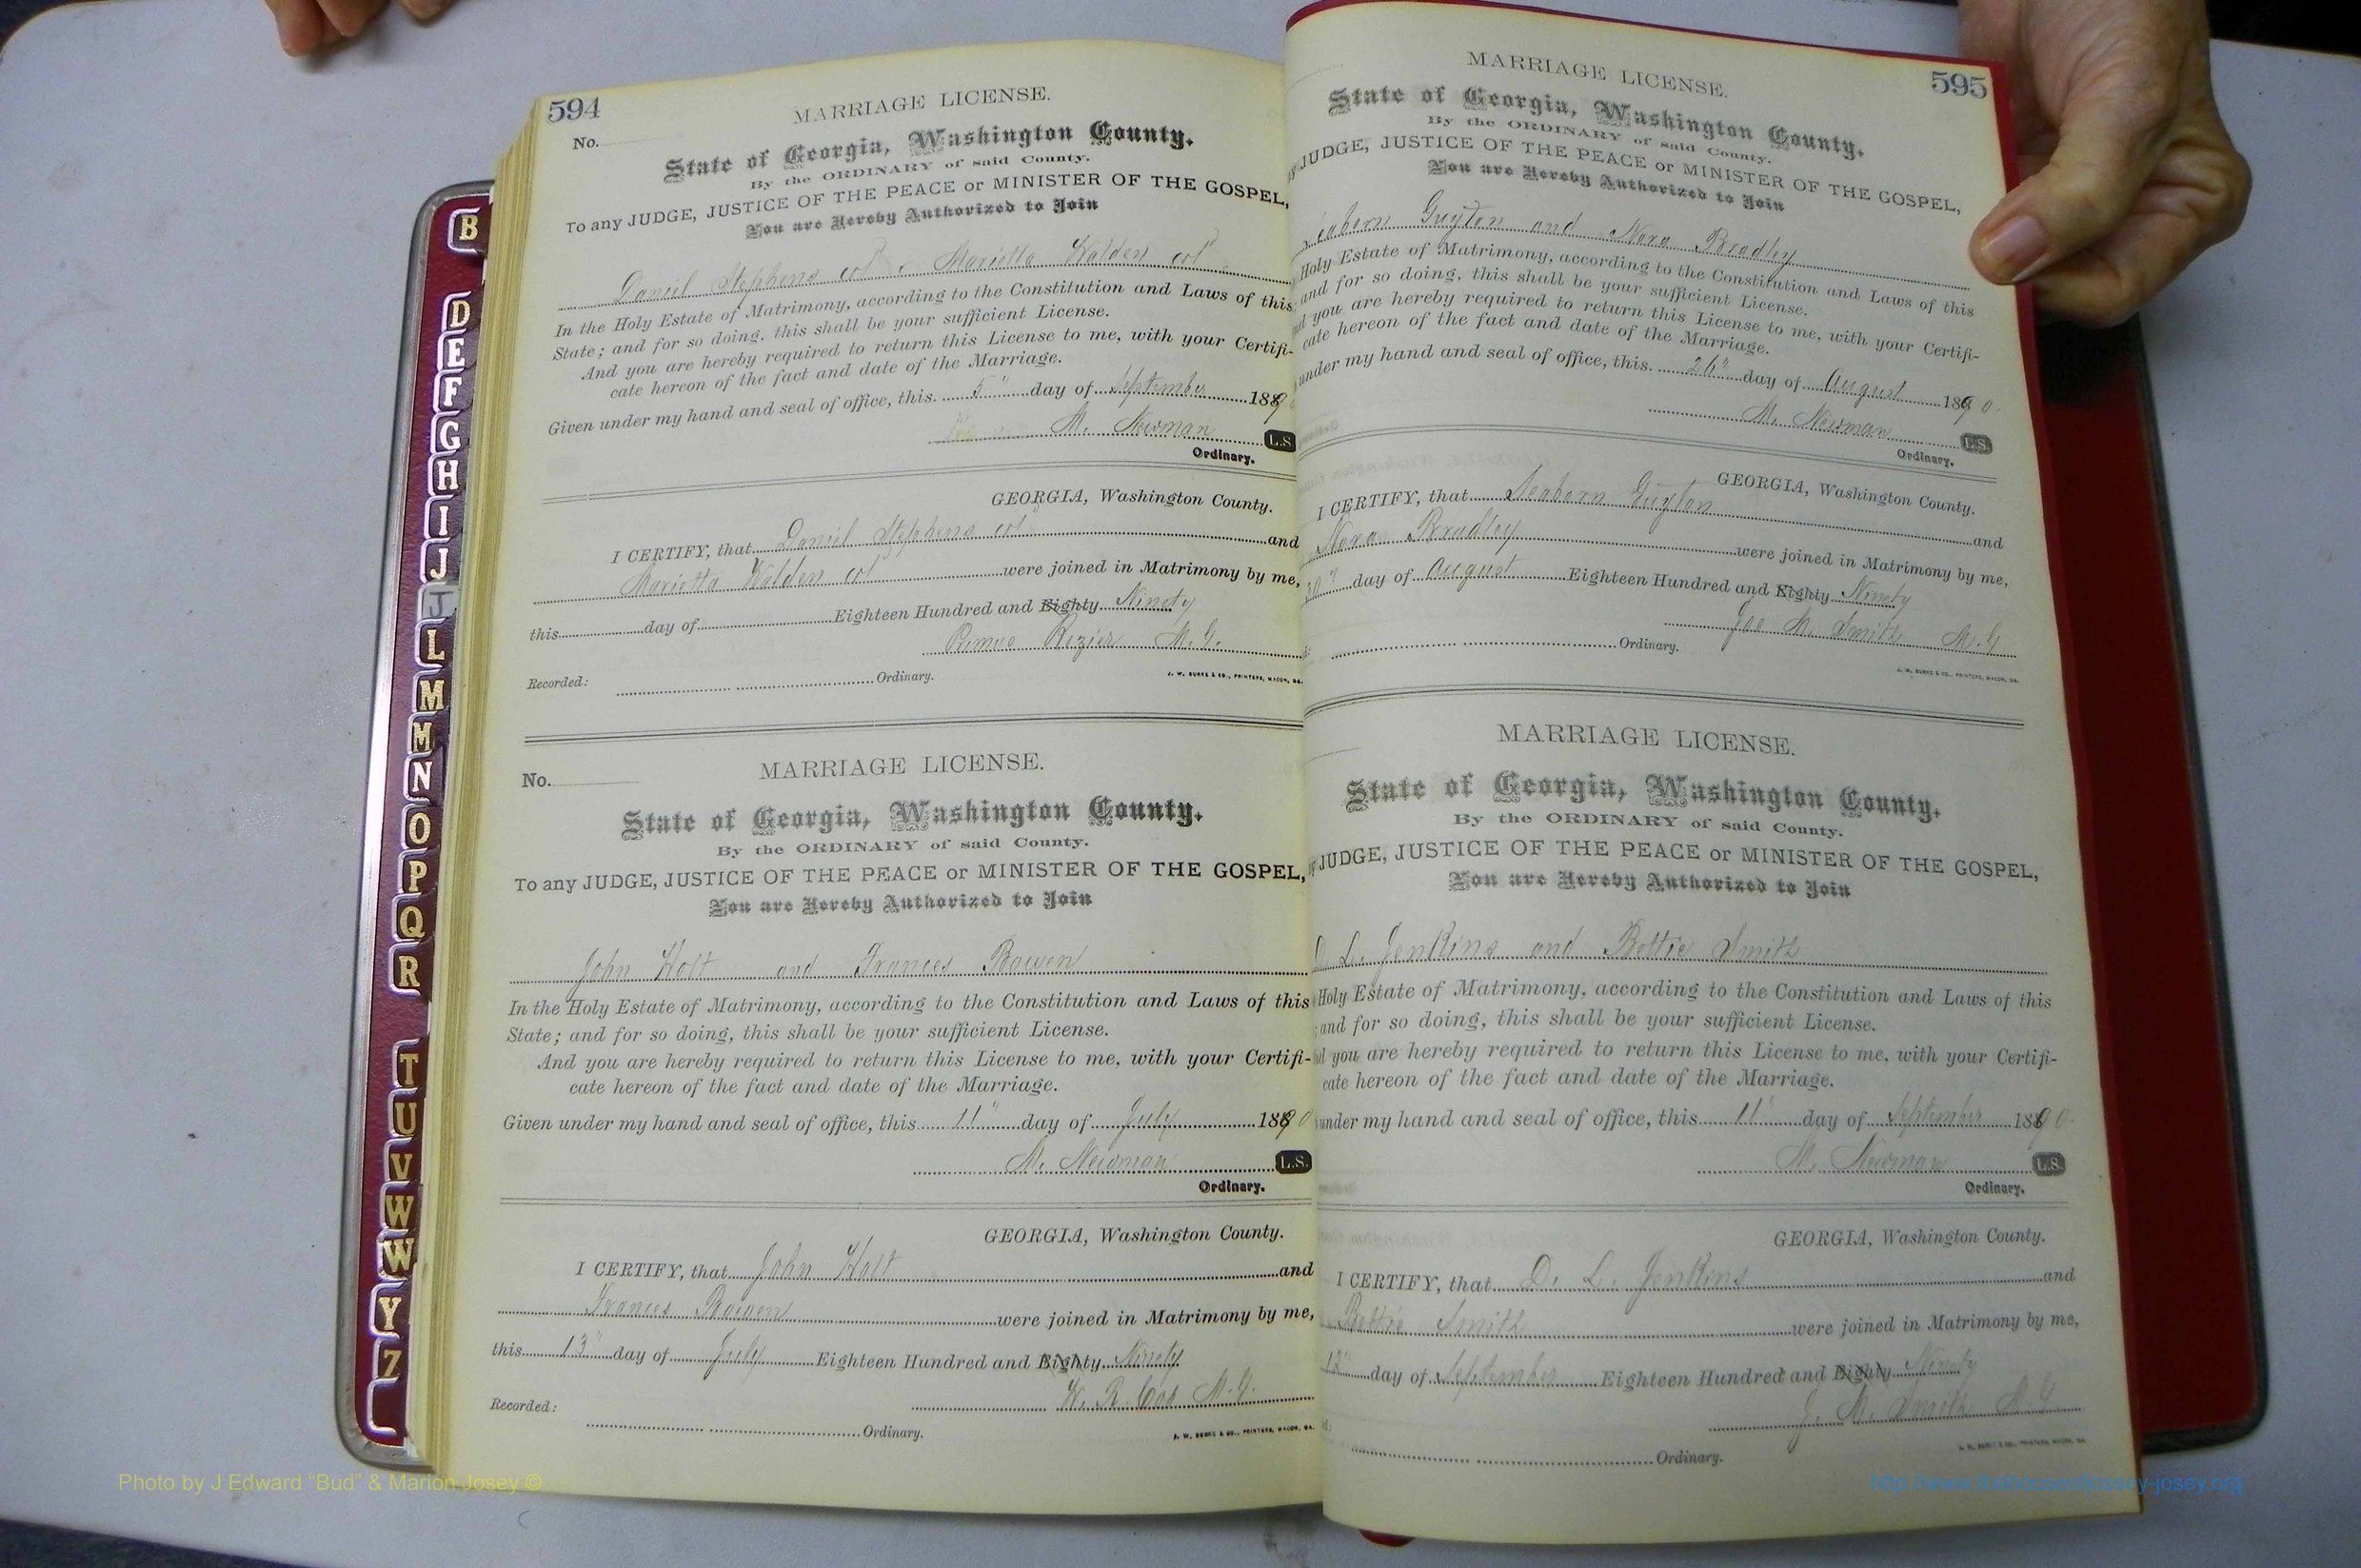 594
MARRIAGE LICENSE.
No.
State of Georgia, Washington County.
By the ORDINARY of said County.
To any JUDGE, JUSTICE OF THE PEACE or MINISTER OF THE GOSPEL,
You are Hereby Authorized to Join
Daniel Stephens col Marietta Walden col
In the Holy Estate of Matrimony, according to the Constitution and Laws of this
State; and for so doing, this shall be your sufficient License.
And you are hereby required to return this License to me, with your Certifi-
cate hereon of the fact and date of the Marriage.
Given under my hand and seal of office, this 5" day of September 1890
M. Newman L.S.
Ordinary.
GEORGIA, Washington County.
I CERTIFY, that Daniel Stephens col and
Marietta Walden col were joined in Matrimony by me,
this day of Eighteen Hundred and Eighty Ninety
Rozier M.G.
Recorded:
Ordinary.
J. W. BURKE & CO., PRINTERS, MACON, GA.
No.
MARRIAGE LICENSE.
State of Georgia, Washington County.
By the ORDINARY of said County.
To any JUDGE, JUSTICE OF THE PEACE or MINISTER OF THE GOSPEL,
You are Hereby Authorized to Join
John Holt and Frances Bowen
In the Holy Estate of Matrimony, according to the Constitution and Laws of this
State; and for so doing, this shall be your sufficient License.
And you are hereby required to return this License to me, with your Certifi-
cate hereon of the fact and date of the Marriage.
Given under my hand and seal of office, this 11" day of July 1890
M. Newman L.S.
Ordinary.
GEORGIA, Washington County.
I CERTIFY, that John Holt and
Frances Bowen were joined in Matrimony by me,
this 13" day of July Eighteen Hundred and Eighty Ninety
W. R. M.G.
Recorded:
Ordinary.
J. W. BURKE & CO., PRINTERS, MACON, GA.
595
MARRIAGE LICENSE.
State of Georgia, Washington County.
By the ORDINARY of said County.
JUDGE, JUSTICE OF THE PEACE or MINISTER OF THE GOSPEL,
You are Hereby Authorized to Join
Seaborn Guyton and Nora Bradley
Holy Estate of Matrimony, according to the Constitution and Laws of this
and for so doing, this shall be your sufficient License.
you are hereby required to return this License to me, with your Certifi-
cate hereon of the fact and date of the Marriage.
under my hand and seal of office, this. 26" day of August 1890
M. Newman L.S.
Ordinary.
GEORGIA, Washington County.
I CERTIFY, that Seaborn Guyton and
Nora Bradley were joined in Matrimony by me,
30" day of August Eighteen Hundred and Eighty Ninety
Joe M. Smith M.G
Ordinary.
J. W. BURKE & CO., PRINTERS, MACON, GA.
MARRIAGE LICENSE.
State of Georgia, Washington County.
By the ORDINARY of said County.
JUDGE, JUSTICE OF THE PEACE or MINISTER OF THE GOSPEL,
You are Hereby Authorized to Join
D. L. Jenkins and Bettie Smith
Holy Estate of Matrimony, according to the Constitution and Laws of this
and for so doing, this shall be your sufficient License.
you are hereby required to return this License to me, with your Certifi-
cate hereon of the fact and date of the Marriage.
under my hand and seal of office, this 11" day of September 1890
M. Newman L.S.
Ordinary.
GEORGIA, Washington County.
I CERTIFY, that D. L. Jenkins and
Bettie Smith were joined in Matrimony by me,
day of September Eighteen Hundred and Eighty Ninety
J. M. Smith M.G
Ordinary.
J. W. BURKE & CO., PRINTERS, MACON, GA.
B
D
E
F
G
H
I
J
J
L
M
M
N
O
P
Q
R
T
U
V
W
W
Y
Z
Photo by J Edward “Bud” & Marion Josey ©
http://www.thehouseofjossey-josey.org